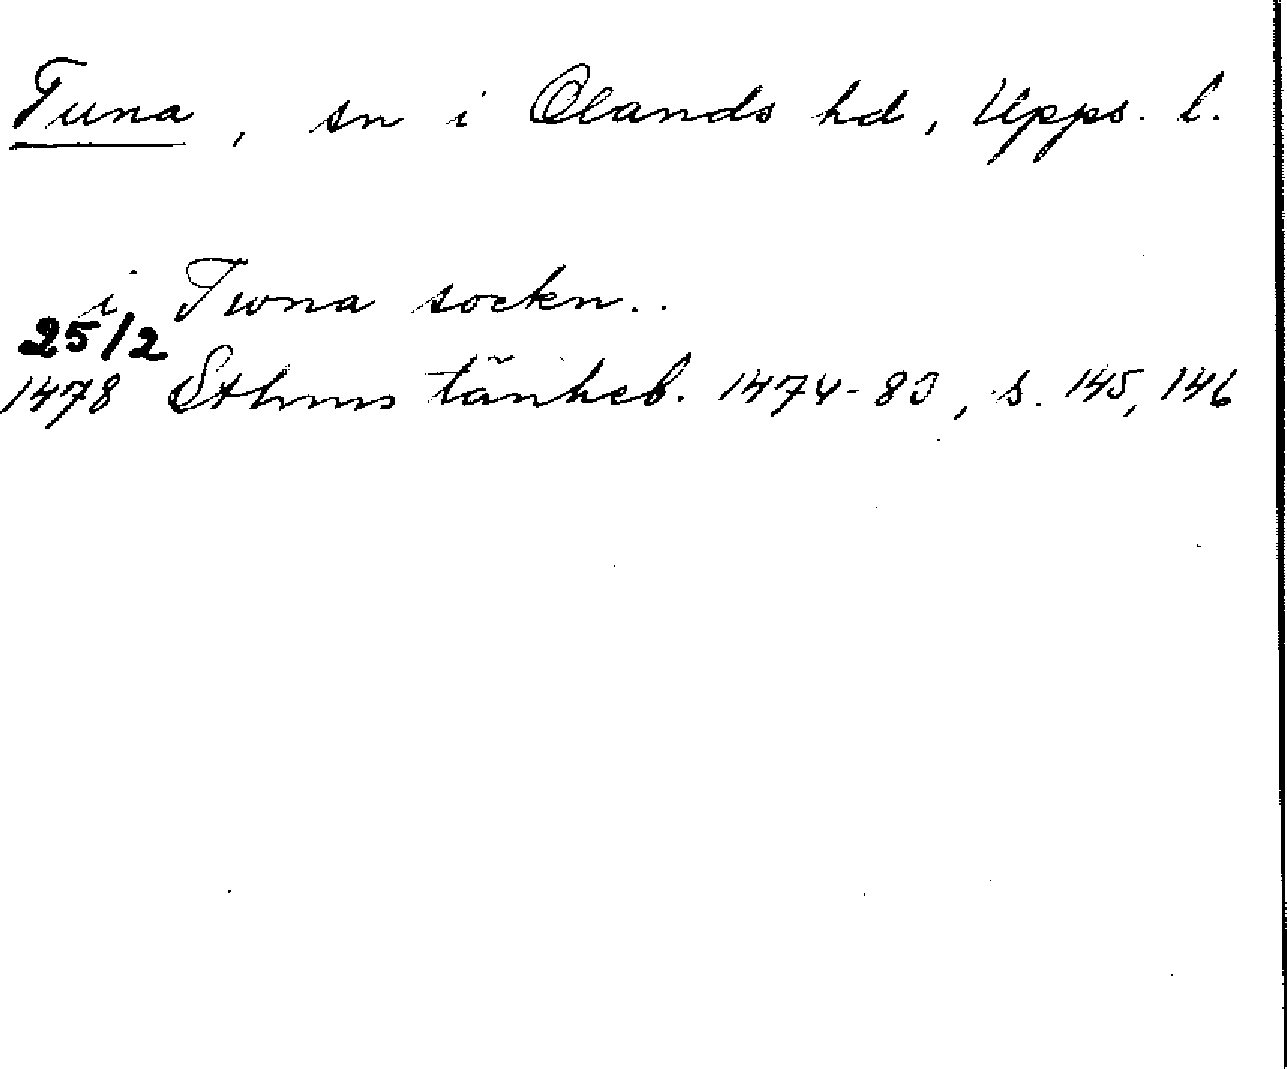 Tuna, sn i Olands hd, Upps. l.
i Twna sockn..
25/2
1478 Sthms tänkeb. 1474-83, s. 145, 146